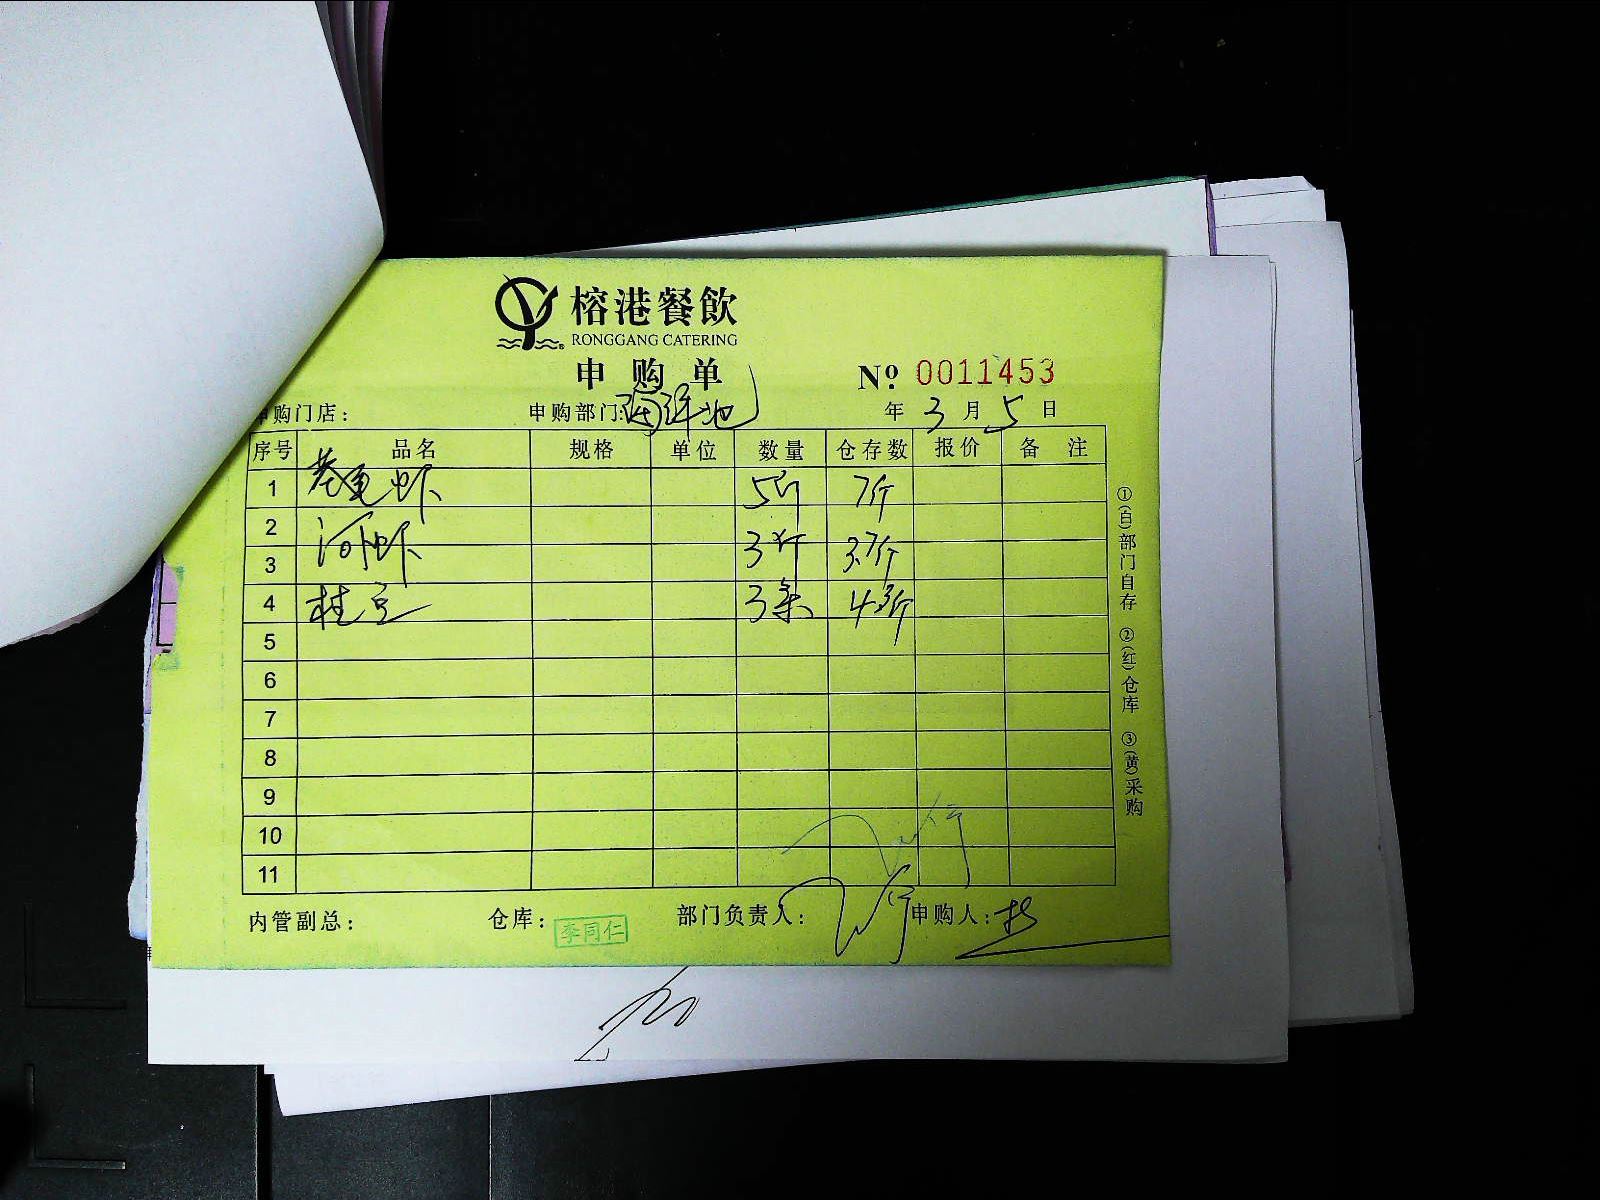 榕港餐飲
RONGGANG CATERING
申购单
Nº: 0011453
申购门店：
申购部门：海鲜池
年 3 月 5 日
序号 品名 规格 单位 数量 仓存数 报价 备注
1 基尾虾 5斤 7斤
2 河虾 3斤 3.7斤
3
4 桂鱼 3条 4.3斤
5
6
7
8
9
10
11
①(白)部门自存 ②(红)仓库 ③(黄)采购
内管副总： 仓库：李同仁 部门负责人： 申购人：